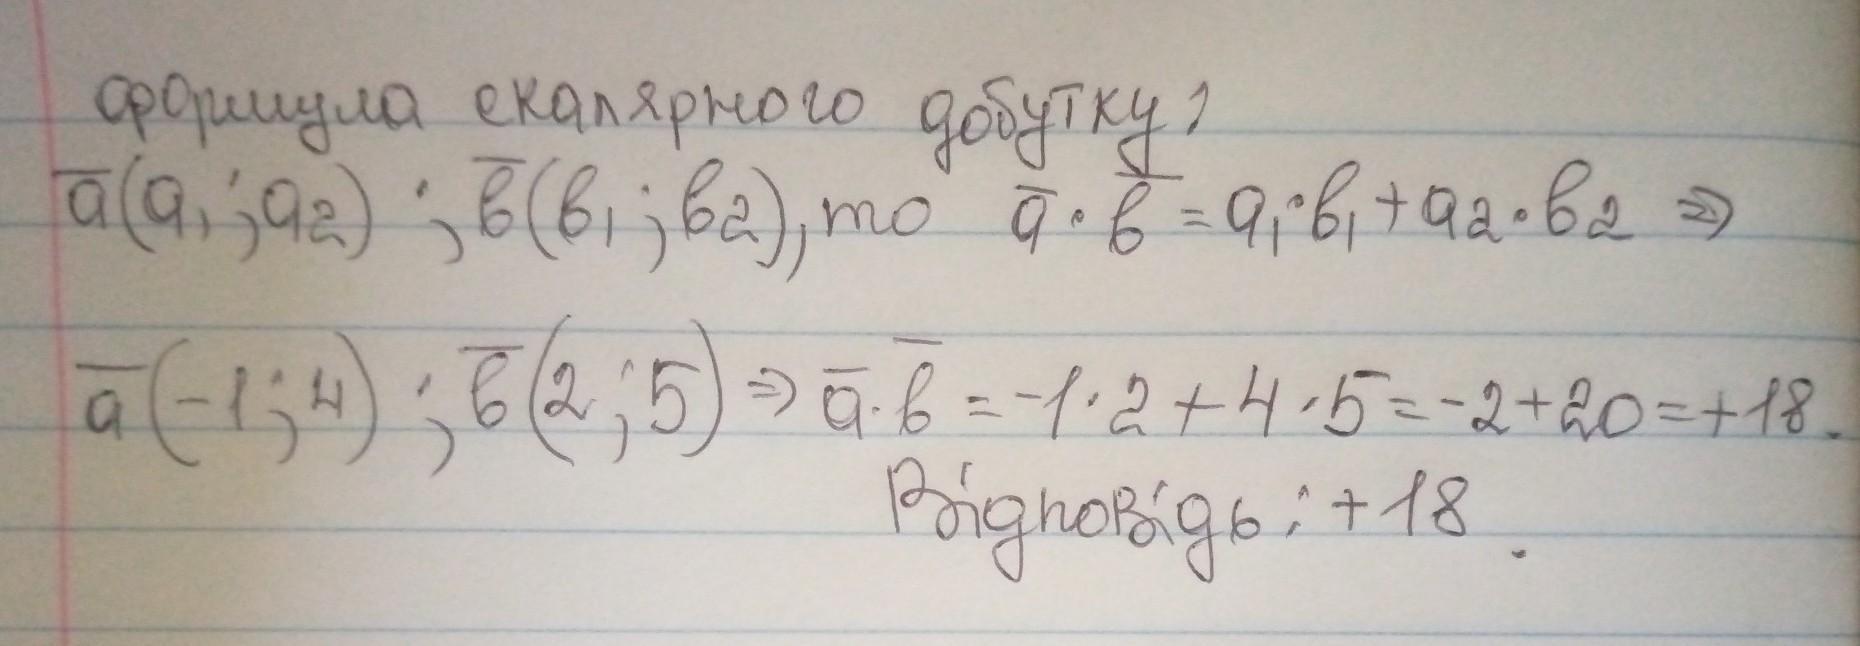 формула скалярного добутку:
a̅(a₁;a₂) ; b̅(b₁;b₂), то a̅·b̅=a₁·b₁+a₂·b₂ ⇒
a̅(-1;4) ; b̅(2;5) ⇒ a̅·b̅=-1·2+4·5=-2+20=+18.
Відповідь: +18.